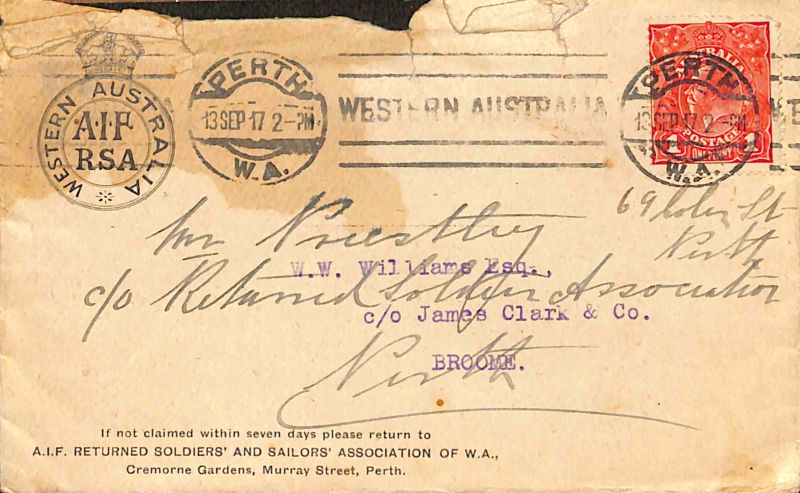 WESTERN AUSTRALIA
A.I.F
R.S.A
PERTH
13 SEP 17 2-PM
W.A.
WESTERN AUSTRALIA
PERTH
13 SEP 17 2-PM
W.A.
WE
AUSTRALIA
POSTAGE
1D
ONE PENNY
69 St
Perth
Mr Priestley
W.W. Williams Esq.,
c/o Returned Soldiers Association
c/o James Clark & Co.
Perth
BROOME.
If not claimed within seven days please return to
A.I.F. RETURNED SOLDIERS' AND SAILORS' ASSOCIATION OF W.A.,
Cremorne Gardens, Murray Street, Perth.